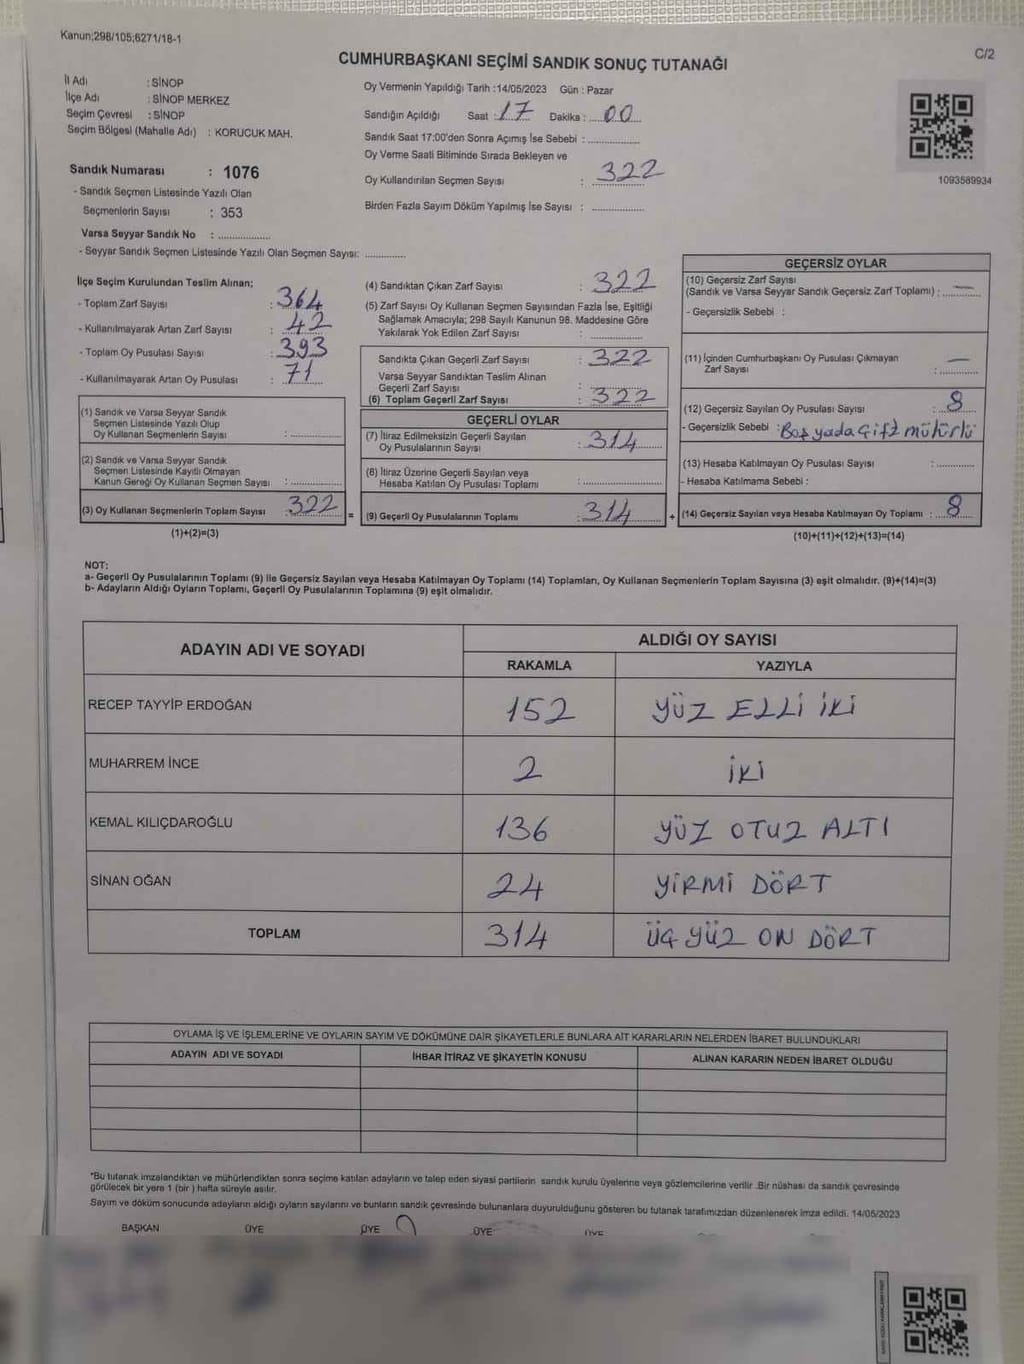 Kanun;298/105;6271/18-1
C/2
CUMHURBAŞKANI SEÇİMİ SANDIK SONUÇ TUTANAĞI
İl Adı : SİNOP
İlçe Adı : SİNOP MERKEZ
Seçim Çevresi : SİNOP
Seçim Bölgesi (Mahalle Adı) : KORUCUK MAH.
Sandık Numarası : 1076
- Sandık Seçmen Listesinde Yazılı Olan
Seçmenlerin Sayısı : 353
Varsa Seyyar Sandık No : ..................
- Seyyar Sandık Seçmen Listesinde Yazılı Olan Seçmen Sayısı: .............
Oy Vermenin Yapıldığı Tarih :14/05/2023 Gün : Pazar
Sandığın Açıldığı Saat : 17 Dakika : 00
Sandık Saat 17:00'den Sonra Açımış İse Sebebi : ................
Oy Verme Saati Bitiminde Sırada Bekleyen ve
Oy Kullandırılan Seçmen Sayısı : 322
Birden Fazla Sayım Döküm Yapılmış İse Sayısı : ................
1093589934
İlçe Seçim Kurulundan Teslim Alınan;
- Toplam Zarf Sayısı : 364
- Kullanılmayarak Artan Zarf Sayısı : 42
- Toplam Oy Pusulası Sayısı : 393
- Kullanılmayarak Artan Oy Pusulası : 71
(1) Sandık ve Varsa Seyyar Sandık
Seçmen Listesinde Yazılı Olup
Oy Kullanan Seçmenlerin Sayısı : ................
(2) Sandık ve Varsa Seyyar Sandık
Seçmen Listesinde Kayıtlı Olmayan
Kanun Gereği Oy Kullanan Seçmen Sayısı : ................
(3) Oy Kullanan Seçmenlerin Toplam Sayısı : 322 =
(1)+(2)=(3)
(4) Sandıktan Çıkan Zarf Sayısı : 322
(5) Zarf Sayısı Oy Kullanan Seçmen Sayısından Fazla İse, Eşitliği
Sağlamak Amacıyla; 298 Sayılı Kanunun 98. Maddesine Göre
Yakılarak Yok Edilen Zarf Sayısı : ................
Sandıkta Çıkan Geçerli Zarf Sayısı : 322
Varsa Seyyar Sandıktan Teslim Alınan
Geçerli Zarf Sayısı : ................
(6) Toplam Geçerli Zarf Sayısı : 322
GEÇERLİ OYLAR
(7) İtiraz Edilmeksizin Geçerli Sayılan
Oy Pusulalarının Sayısı : 314
(8) İtiraz Üzerine Geçerli Sayılan veya
Hesaba Katılan Oy Pusulası Toplamı : ................
(9) Geçerli Oy Pusulalarının Toplamı : 314 +
GEÇERSİZ OYLAR
(10) Geçersiz Zarf Sayısı
(Sandık ve Varsa Seyyar Sandık Geçersiz Zarf Toplamı) : —
- Geçersizlik Sebebi :
(11) İçinden Cumhurbaşkanı Oy Pusulası Çıkmayan
Zarf Sayısı : —
(12) Geçersiz Sayılan Oy Pusulası Sayısı : 8
- Geçersizlik Sebebi : Boş yada Çift mühürlü
(13) Hesaba Katılmayan Oy Pusulası Sayısı : .............
- Hesaba Katılmama Sebebi :
(14) Geçersiz Sayılan veya Hesaba Katılmayan Oy Toplamı : 8
(10)+(11)+(12)+(13)=(14)
NOT:
a- Geçerli Oy Pusulalarının Toplamı (9) ile Geçersiz Sayılan veya Hesaba Katılmayan Oy Toplamı (14) Toplamları, Oy Kullanan Seçmenlerin Toplam Sayısına (3) eşit olmalıdır. (9)+(14)=(3)
b- Adayların Aldığı Oyların Toplamı, Geçerli Oy Pusulalarının Toplamına (9) eşit olmalıdır.
ADAYIN ADI VE SOYADI ALDIĞI OY SAYISI
RAKAMLA YAZIYLA
RECEP TAYYİP ERDOĞAN 152 YÜZ ELLİ İKİ
MUHARREM İNCE 2 İKİ
KEMAL KILIÇDAROĞLU 136 YÜZ OTUZ ALTI
SİNAN OĞAN 24 YİRMİ DÖRT
TOPLAM 314 ÜÇ YÜZ ON DÖRT
OYLAMA İŞ VE İŞLEMLERİNE VE OYLARIN SAYIM VE DÖKÜMÜNE DAİR ŞİKAYETLERLE BUNLARA AİT KARARLARIN NELERDEN İBARET BULUNDUKLARI
ADAYIN ADI VE SOYADI İHBAR İTİRAZ VE ŞİKAYETİN KONUSU ALINAN KARARIN NEDEN İBARET OLDUĞU
*Bu tutanak imzalandıktan ve mühürlendikten sonra seçime katılan adayların ve talep eden siyasi partilerin sandık kurulu üyelerine veya gözlemcilerine verilir .Bir nüshası da sandık çevresinde
görülecek bir yere 1 (bir ) hafta süreyle asılır.
Sayım ve döküm sonucunda adayların aldığı oyların sayılarını ve bunların sandık çevresinde bulunanlara duyurulduğunu gösteren bu tutanak tarafımızdan düzenlenerek imza edildi. 14/05/2023
BAŞKAN ÜYE ÜYE ÜYE ÜYE